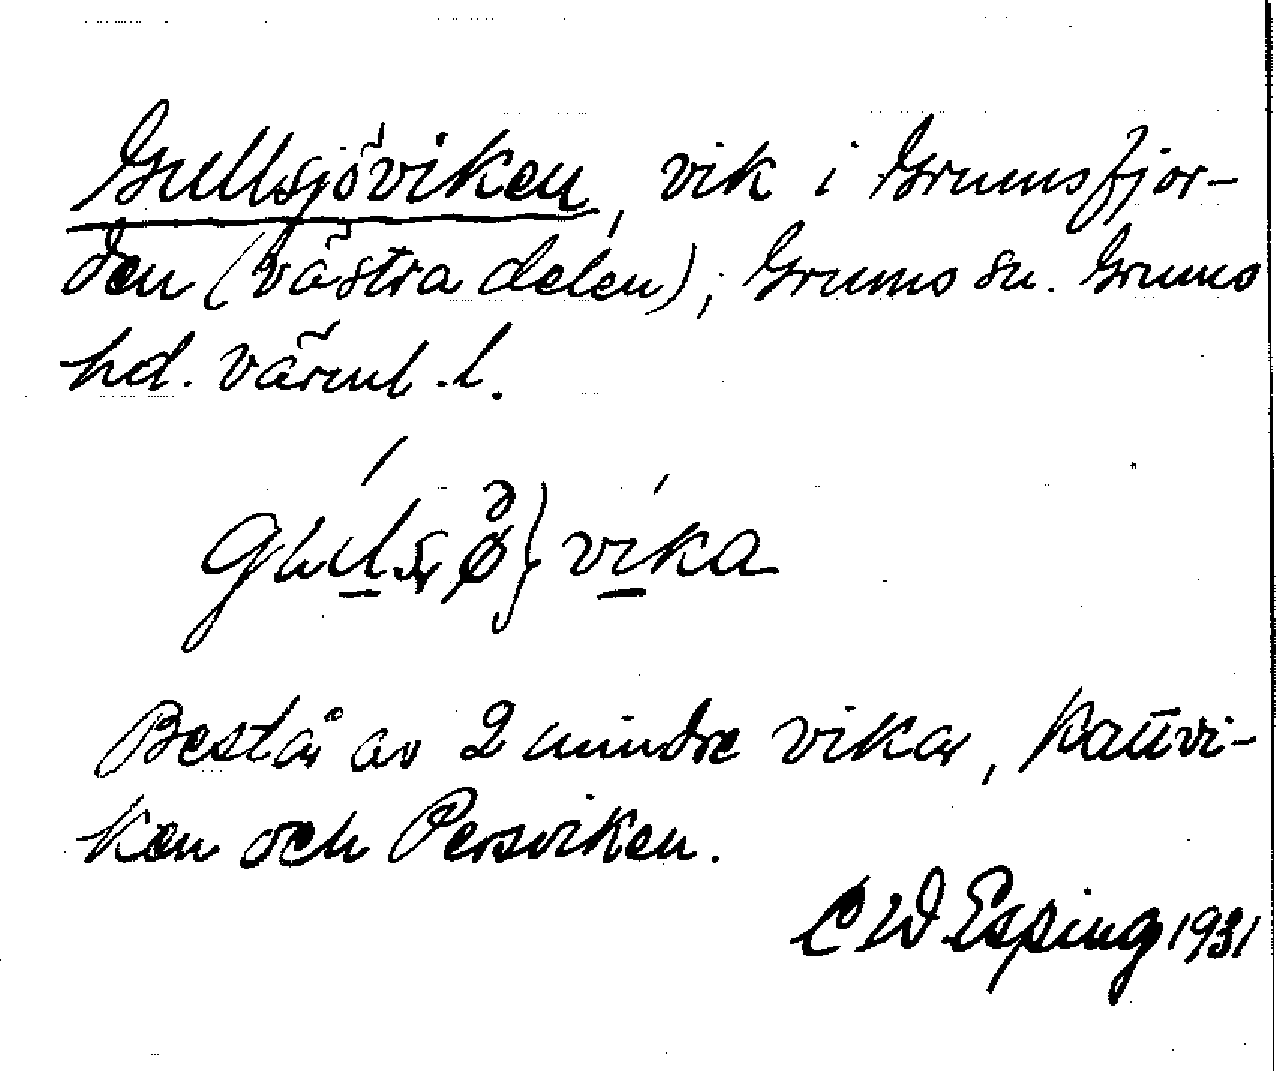 Gullsjöviken, vik i Grumsfjor-
den (västra delen), Grums sn. Grums
hd. Värml. l.
vika
Består av 2 mindre vikar, Kattvi-
ken och Persviken.
C W Esping 1931